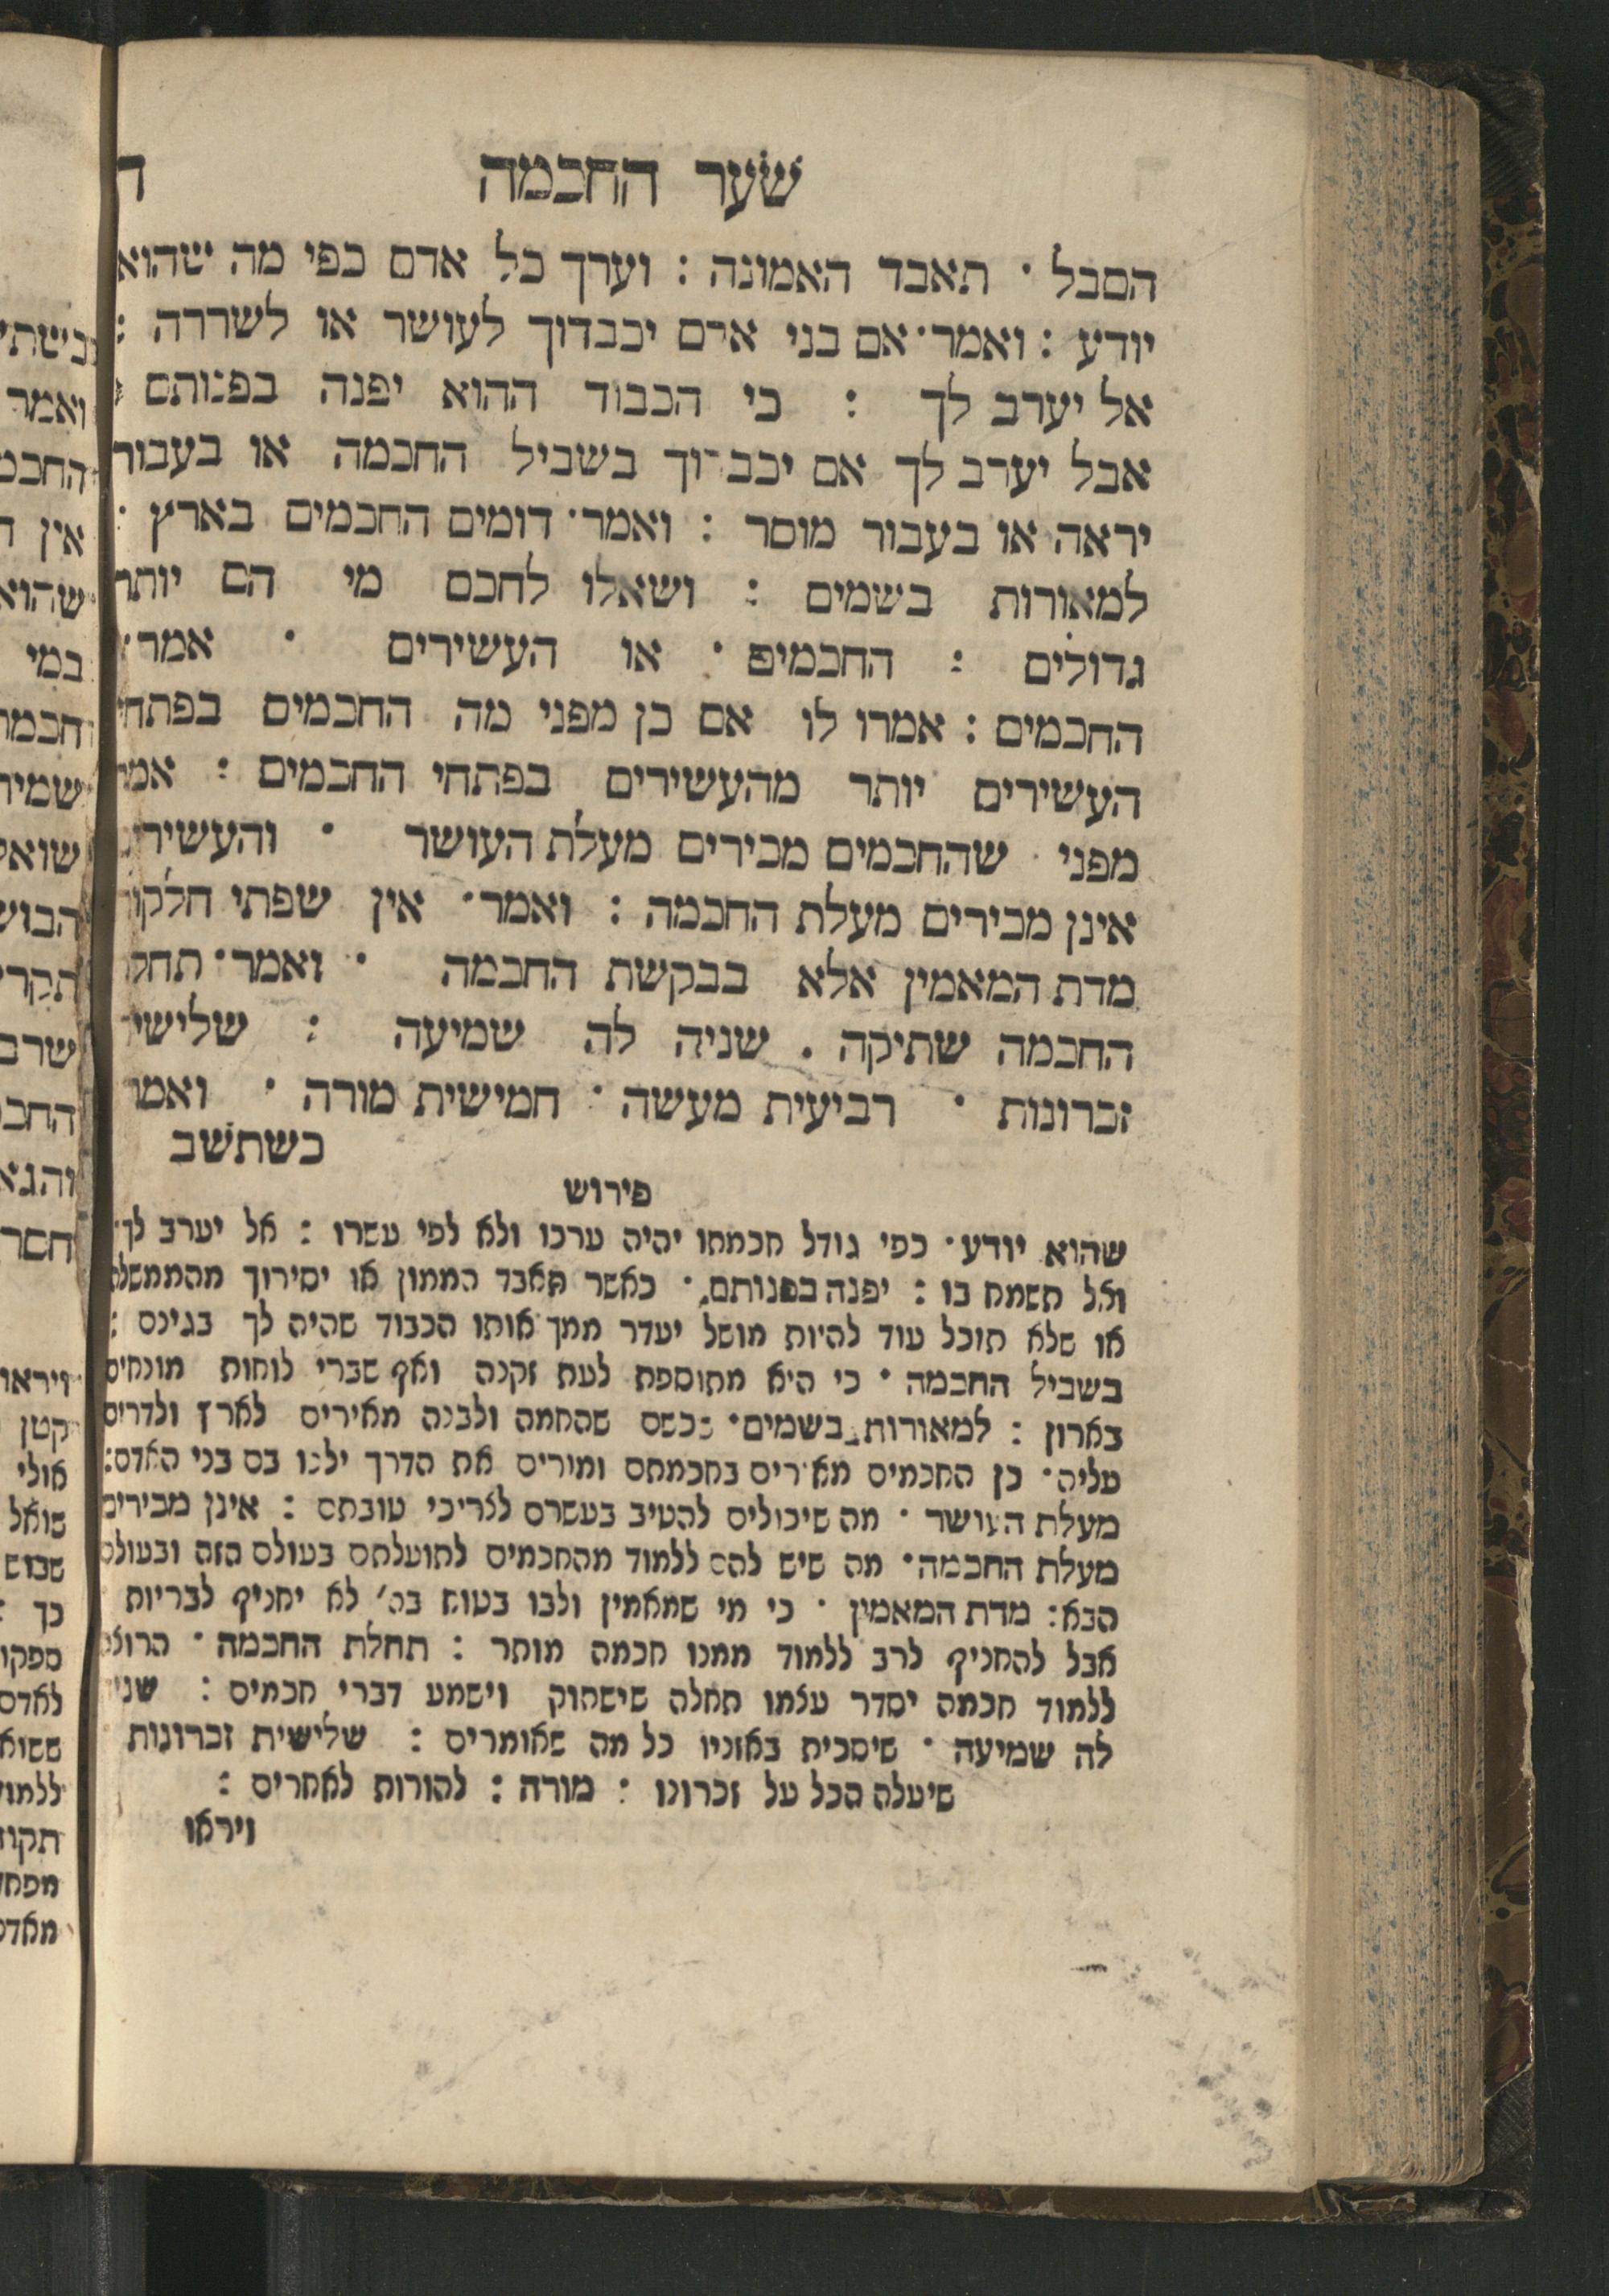 שער החכמה
ה
הסבל · תאבד האמונה : וערך כל אדם כפי מה שהוא
יודע : ואמר · אם בני אדם יכבדוך לעושר או לשררה :
אל יערב לך : כי הכבוד ההוא יפנה בפנותם :
אבל יערב לך אם יכבדוך בשביל החכמה או בעבור
יראה או בעבור מוסר : ואמר · דומים החכמים בארץ :
למאורות בשמים : ושאלו לחכם מי הם יותר
גדולים : החכמים · או העשירים · אמר ·
החכמים : אמרו לו אם כן מפני מה החכמים בפתחי
העשירים יותר מהעשירים בפתחי החכמים : אמר
מפני שהחכמים מכירים מעלת העושר · והעשירי
אינן מכירים מעלת החכמה : ואמר · אין שפתי חלקו
מדת המאמין אלא בבקשת החכמה · ואמר · תחל
החכמה שתיקה . שניה לה שמיעה : שלישי
זכרונות · רביעית מעשה · חמישית מורה · ואמר
כשתשב
פירוש
שהוא יודע · כפי גודל חכמתו יהיה ערכו ולא לפי עשרו : אל יערב לך
ואל תשמח בו : יפנה בפנותם · כאשר תאבד הממון או יסירוך מהממשלה
או שלא תוכל עוד להיות מושל יעדר ממך אותו הכבוד שהיה לך בגינם :
בשביל החכמה · כי היא מתוספת לעת זקנה ואף שברי לוחות מונחים
בארון : למאורות בשמים · כשם שהחמה ולבנה מאירים לארץ ולדרים
עליה · כן החכמים מאירים בחכמתם ומורים את הדרך ילכו בם בני האדם :
מעלת העושר · מה שיכולים להטיב בעשרם לצריכי טובתם : אינן מכירים
מעלת החכמה · מה שיש להם ללמוד מהחכמים לתועלתם בעולם הזה ובעולם
הבא : מדת המאמין · כי מי שמאמין ולבו בטוח בה' לא יחניף לבריות
אבל להחניף לרב ללמוד ממנו חכמה מותר : תחלת החכמה · הרוצה
ללמוד חכמה יסדר עצמו תחלה שישתוק וישמע דברי חכמים : שני
לה שמיעה · שיסכית באזניו כל מה שאומרים : שלישית זכרונות
שיעלה הכל על זכרונו : מורה : להורות לאחרים :
ויראו